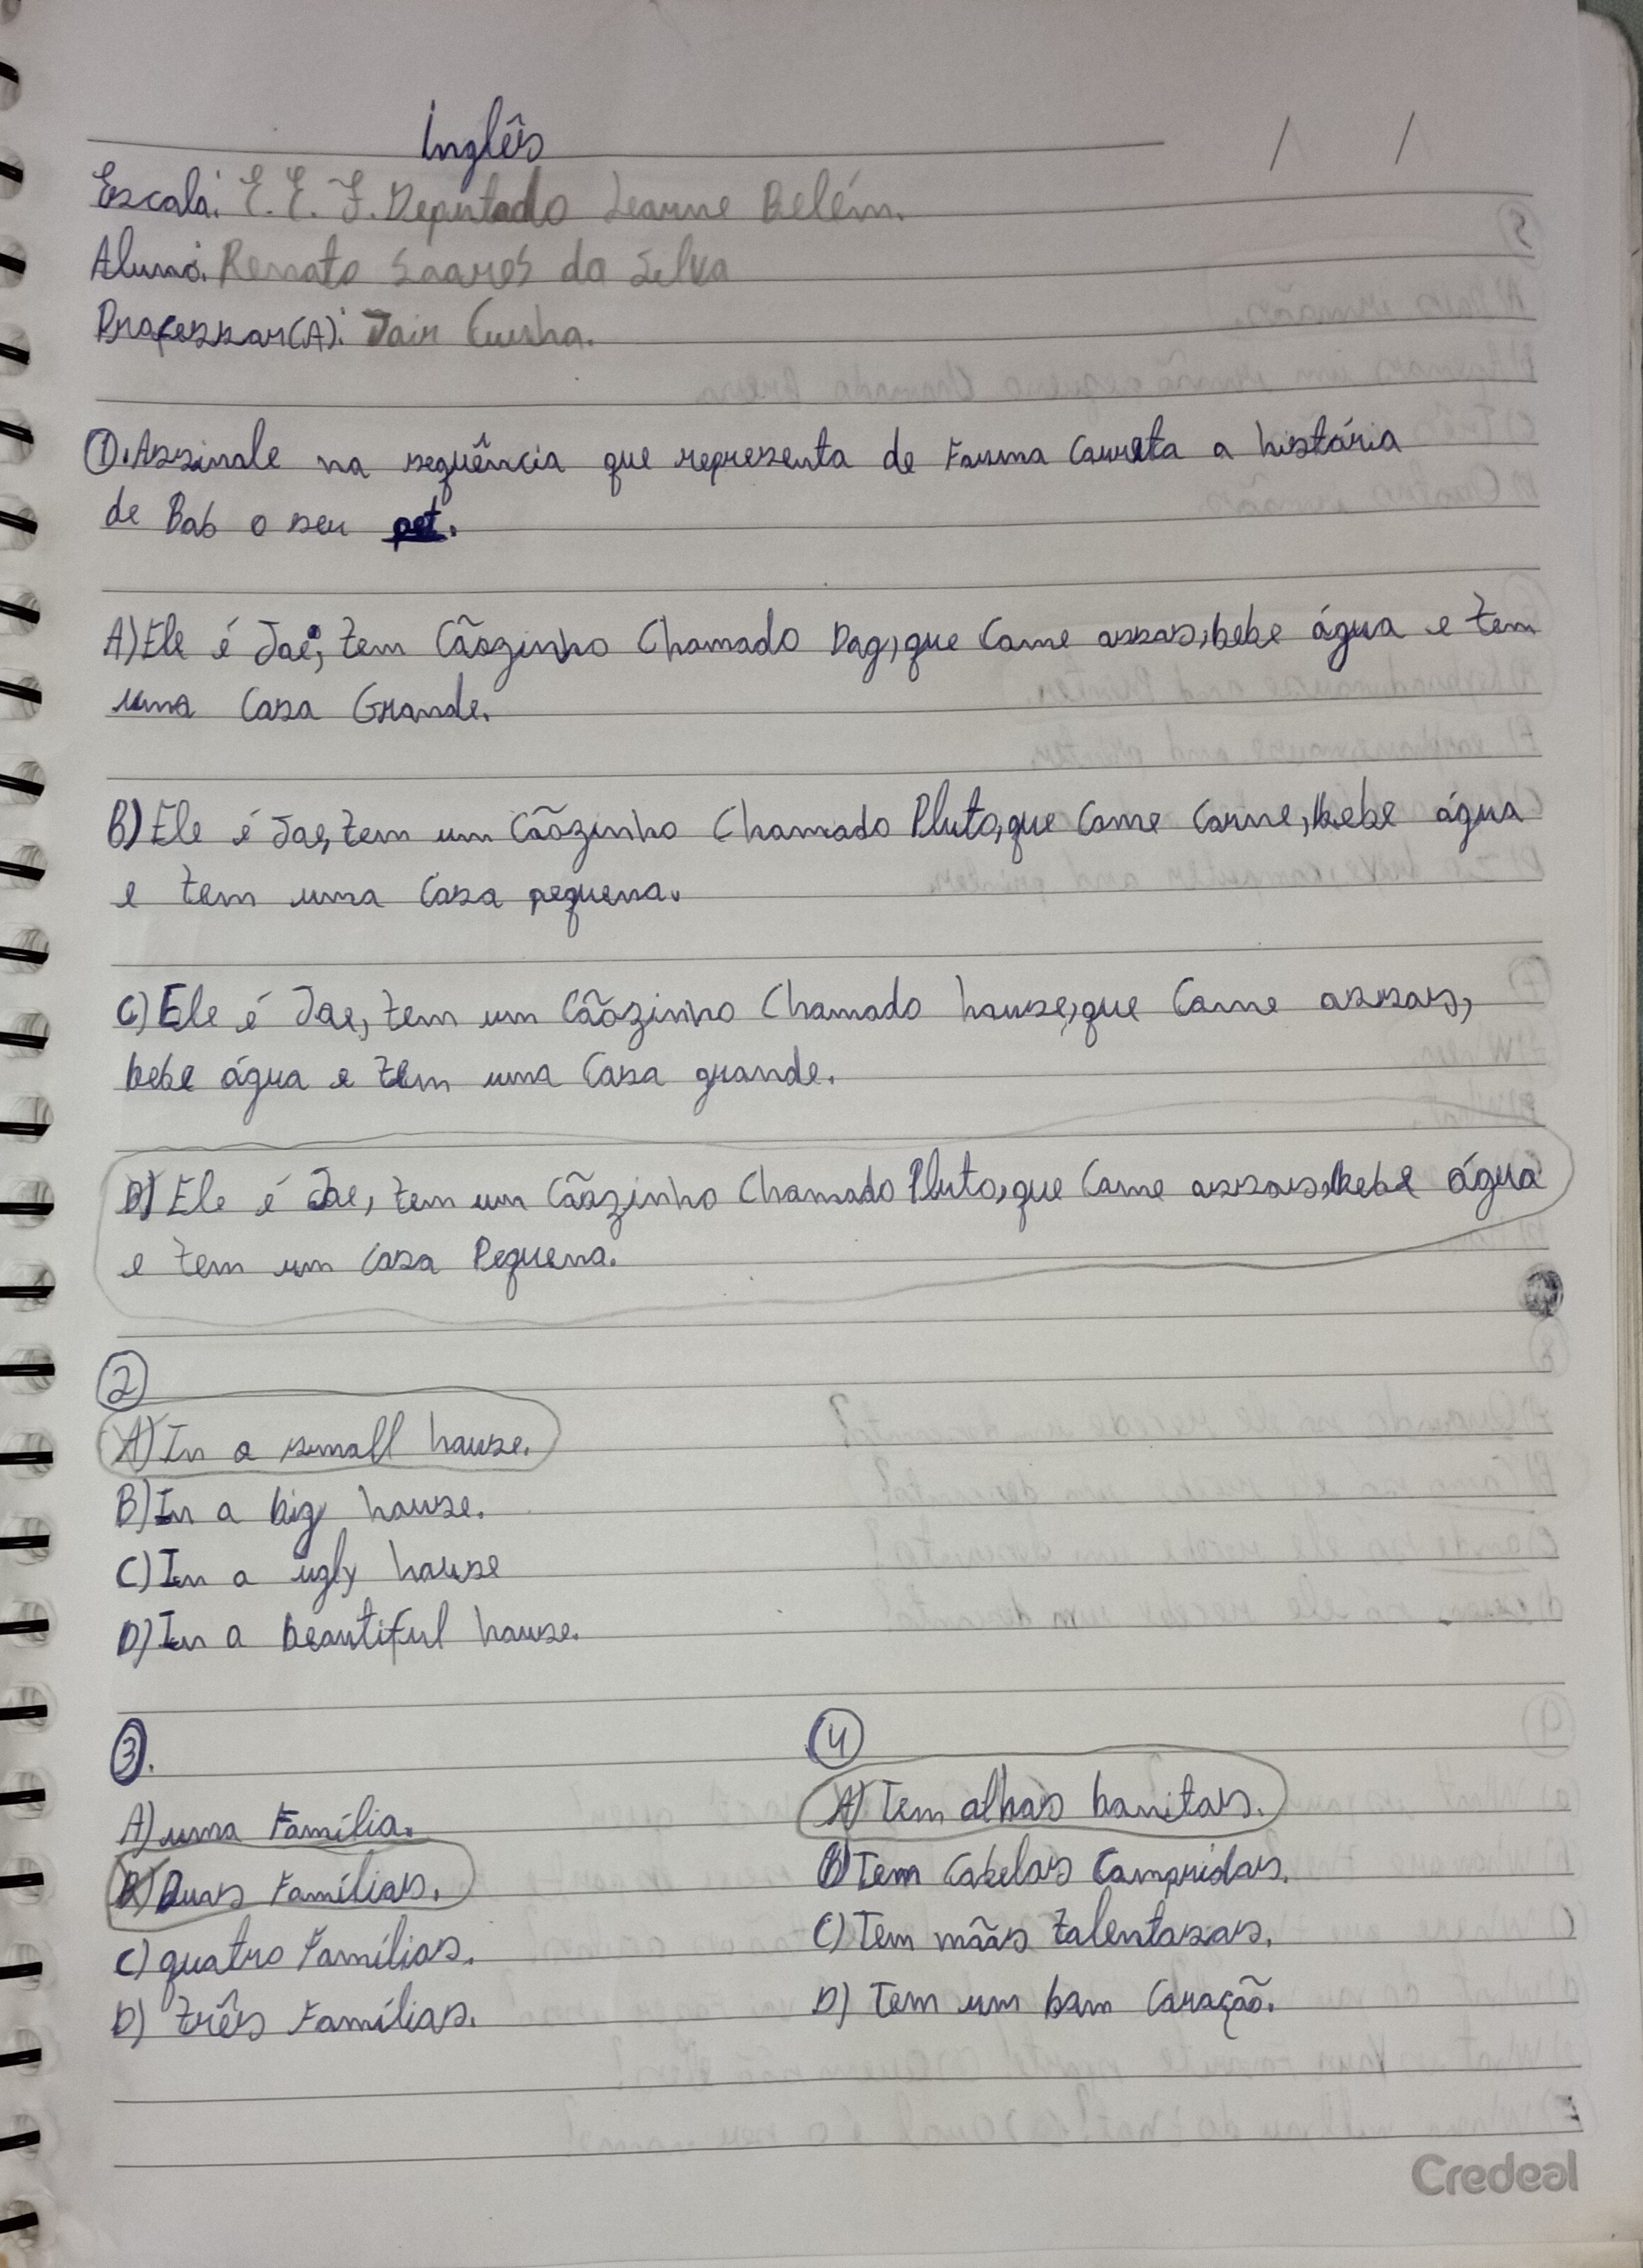 Inglês
/ /
Escola: E. E. F. Deputado Learne Belém.
Aluno: Renato Soares da Silva
Professor(A): Jair Cunha.
①. Assinale na sequência que representa de Forma Correta a história
de Bob o seu pet.
A) Ele é Joe, tem Cãozinho Chamado Dog, que Come ossos, bebe água e tem
uma Casa Grande.
B) Ele é Joe, tem um Cãozinho Chamado Pluto, que Come Carne, bebe água
e tem uma Casa pequena.
C) Ele é Joe, tem um Cãozinho Chamado house, que Come ossos,
bebe água e tem uma Casa grande.
D) Ele é Joe, tem um Cãozinho Chamado Pluto, que Come ossos, bebe água
e tem um Casa Pequena.
②
A) In a small house.
B) In a big house.
C) In a ugly house
D) In a beautiful house.
③.
A) uma Família.
B) Duas Famílias.
C) quatro Famílias.
D) três Famílias.
④
A) Tem olhos bonitos.
B) Tem Cabelos Compridos.
C) Tem mãos talentosas.
D) Tem um bom Coração.
Credeal